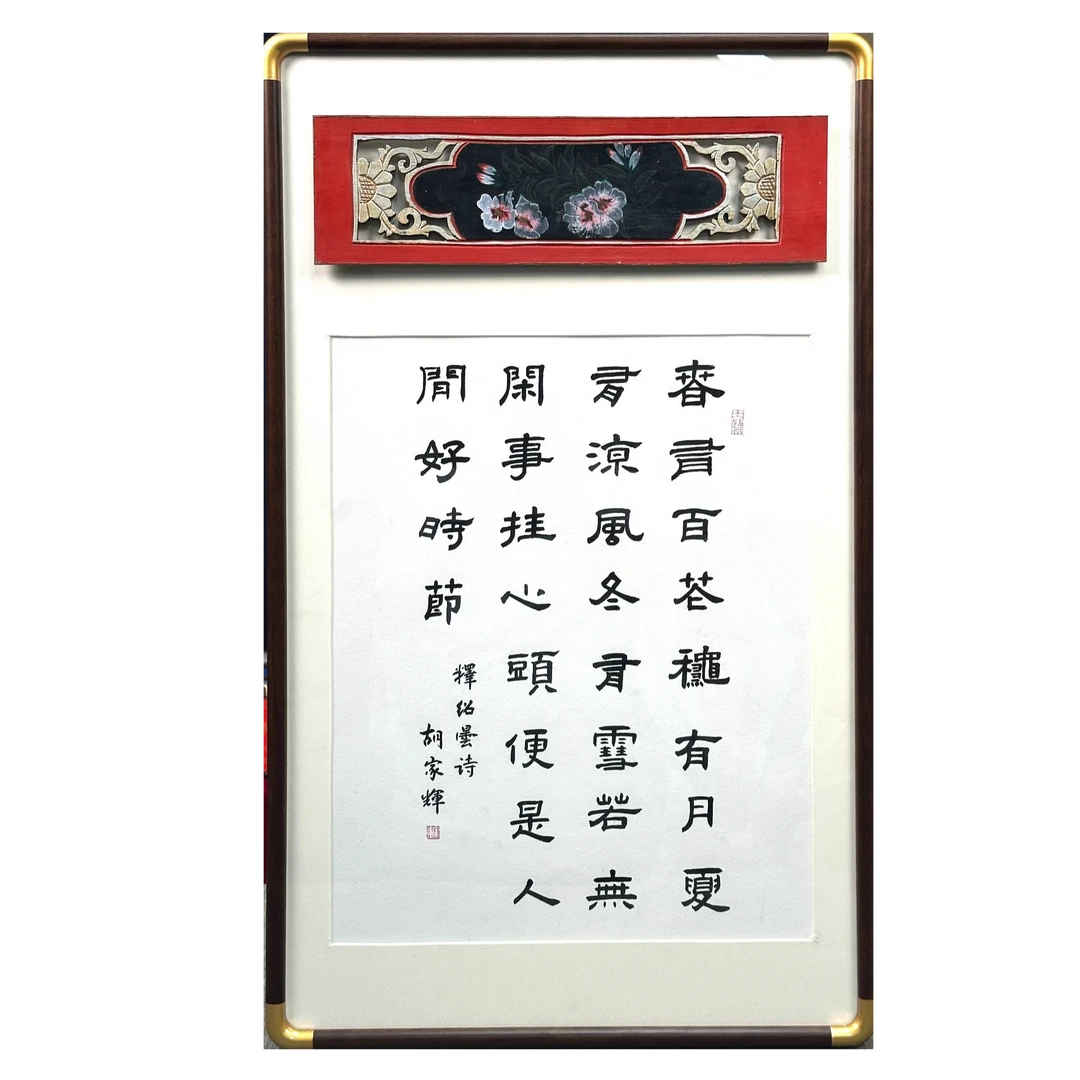 春有百花穐有月夏
有涼風冬有雪若無
閑事挂心頭便是人
間好時節
釋紹曇诗
胡家輝